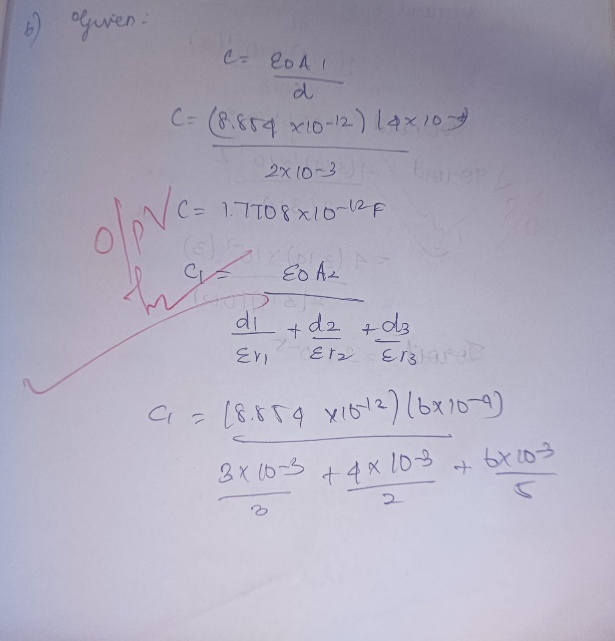 b) Given:
C = ε0 A1
d
C = (8.854 ×10-12) (4×10-4)
2×10-3
C = 1.7708×10-12 F
C1 = ε0 A2
d1/εr1 + d2/εr2 + d3/εr3
C1 = (8.854 ×10-12) (6×10-4)
3×10-3/3 + 4×10-3/2 + 6×10-3/5